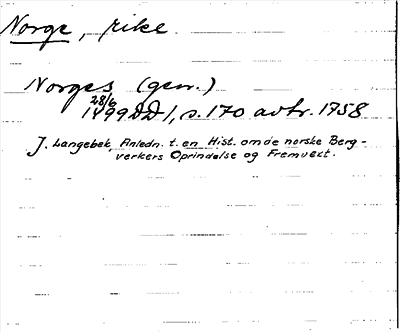 Norge, rike
Norges (gen.)
28/6
1499 DD 1, s. 170 avtr. 1758
J. Langebek, Anledn. t. en Hist. om de norske Berg-
verkers Oprindelse og Fremvext.